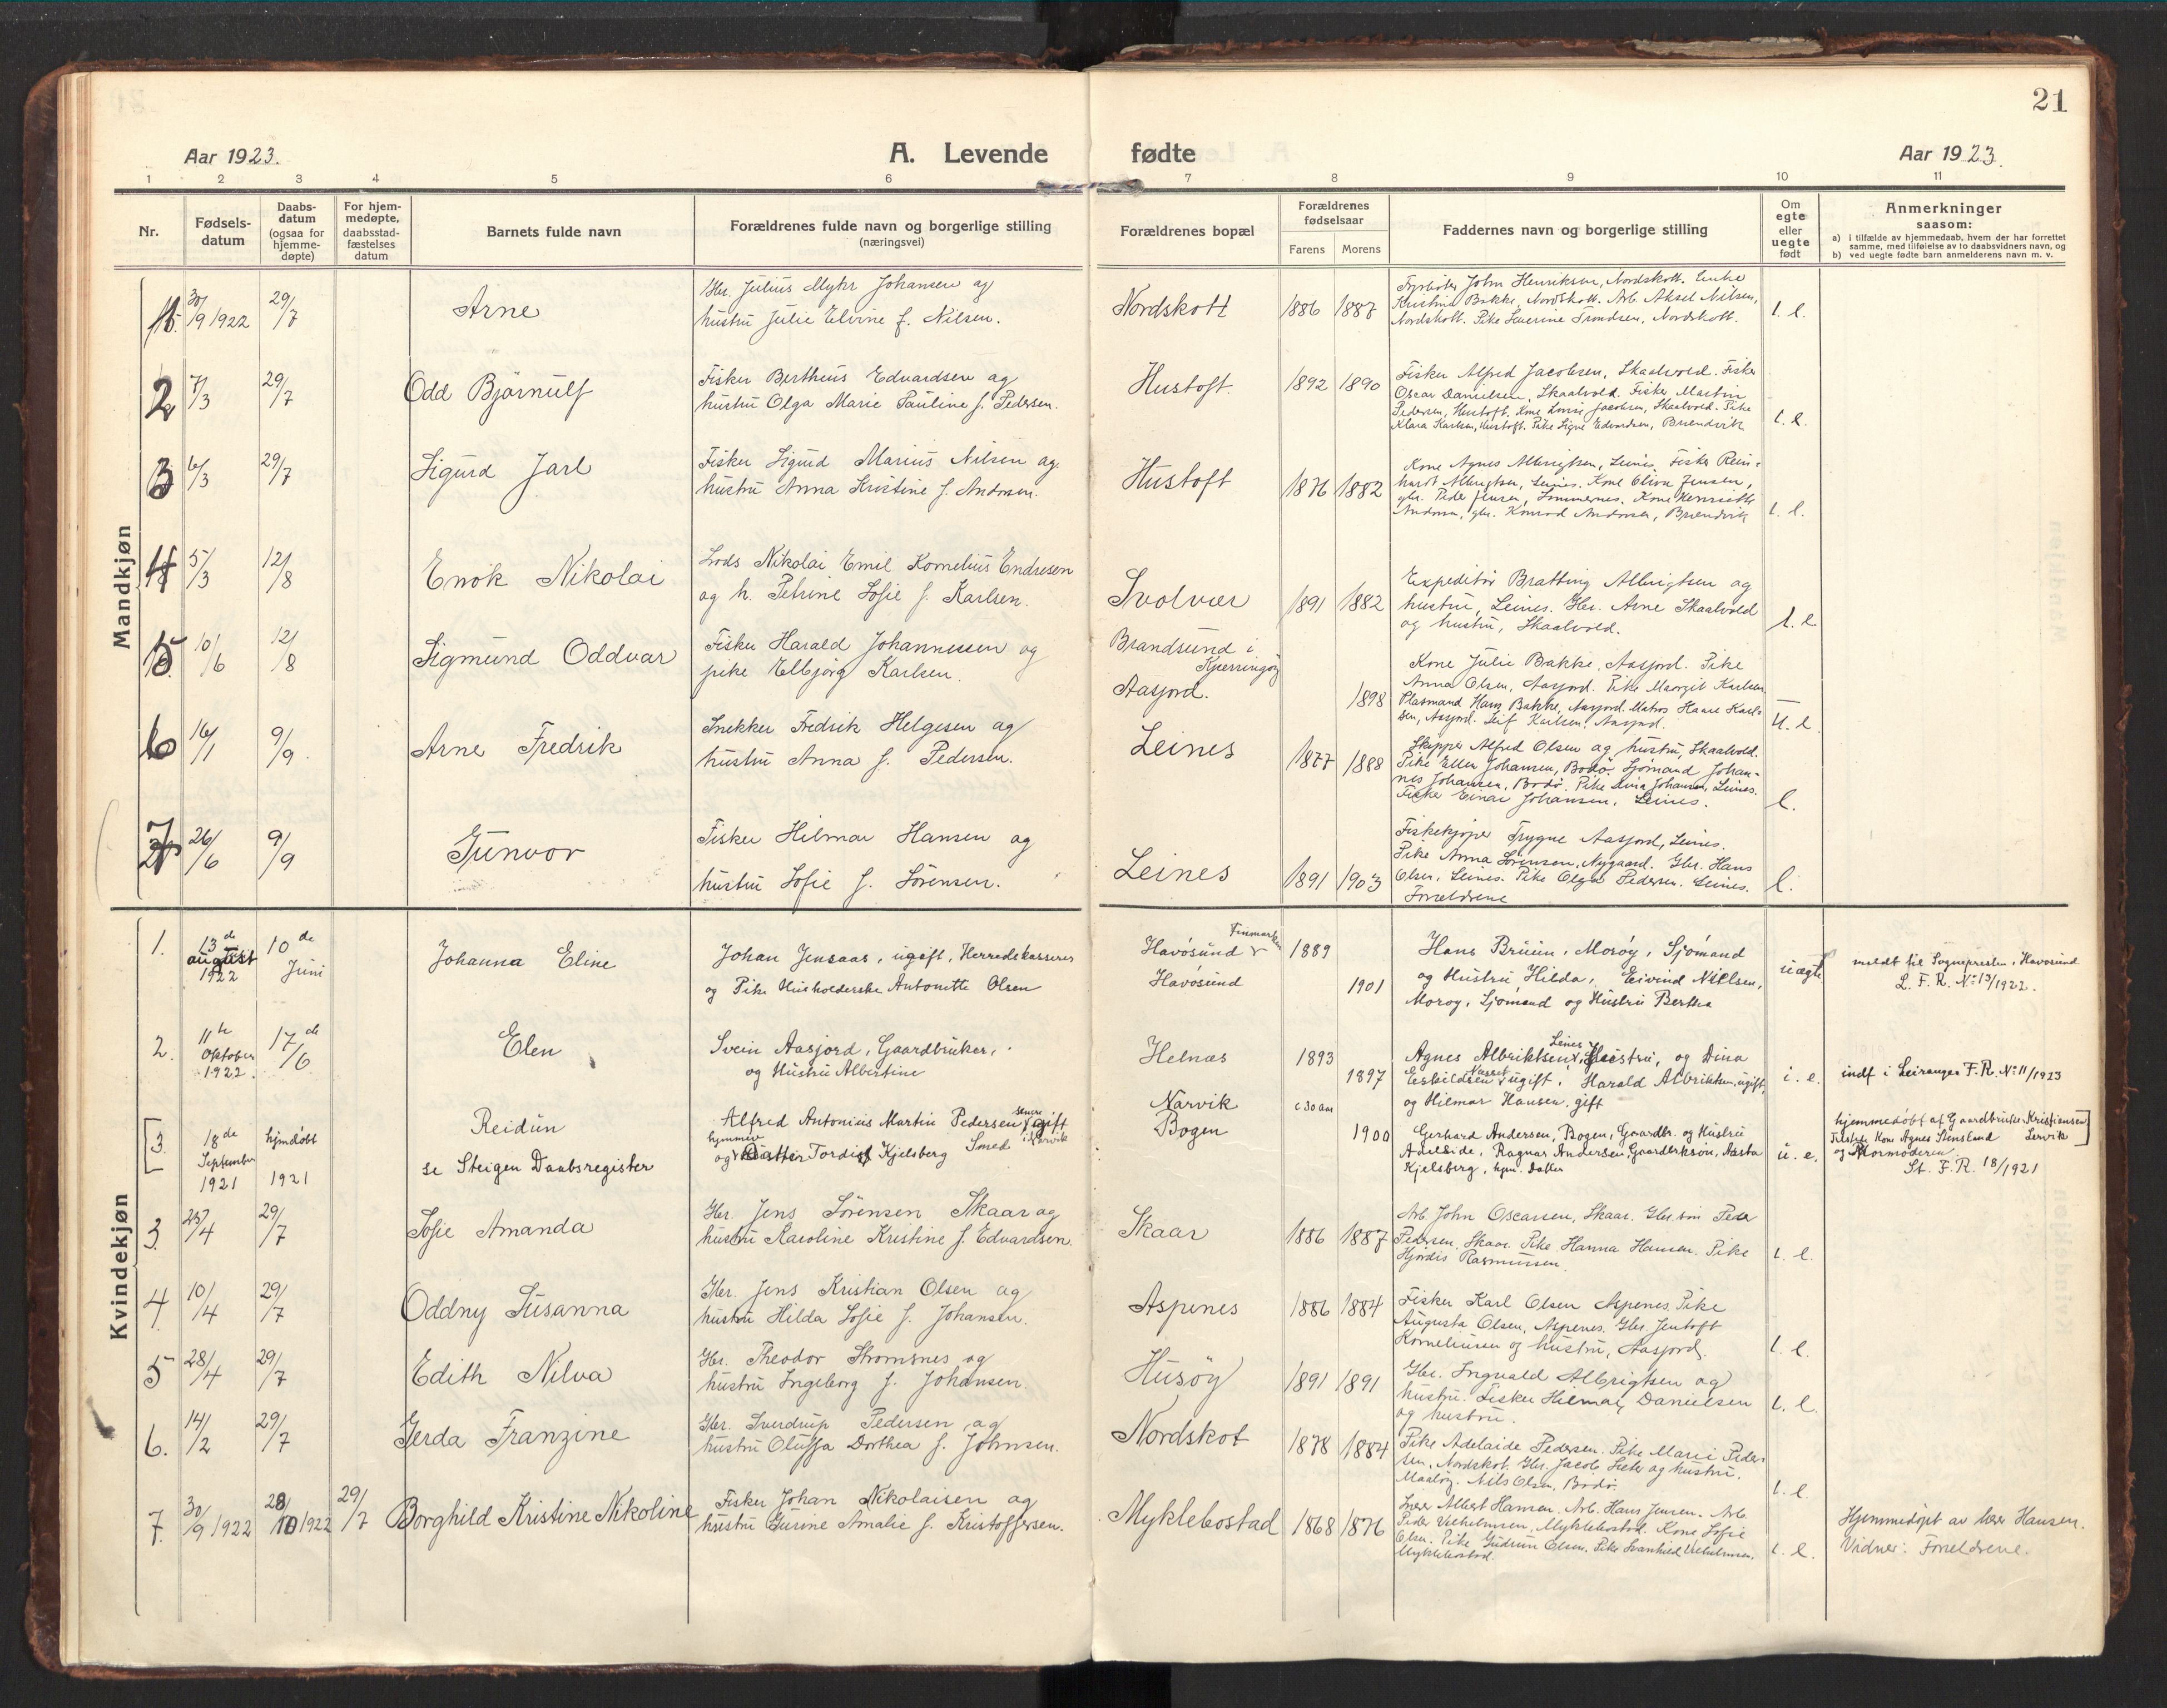 21
Aar 1923.
A. Levende
fødte
Aar 1923.
1 2 3 4 5 6 7 8 9 10 11
Nr.
Fødsels-
datum
Daabs-
datum
(ogsaa for
hjemme-
døpte)
For hjem-
medøpte,
daabsstad-
fæstelses
datum
Barnets fulde navn
Forældrenes fulde navn og borgerlige stilling
(næringsvei)
Forældrenes bopæl
Forældrenes
fødselsaar
Farens Morens
Faddernes navn og borgerlige stilling
Om
egte
eller
uegte
født
Anmerkninger
saasom:
a) i tilfælde av hjemmedaab, hvem der har forrettet
samme, med tilføielse av to daabsvidners navn, og
b) ved uegte fødte barn anmelderens navn m. v.
Mandkjøn
1. 30/9 1922 29/7 Arne
Gbr. Julius Myhr Johansen og
hustru Julie Elvine f. Nilsen.
Nordskott 1886 1887
John Henriksen, Nordskott. Enke
Kristine Bakke, Nordskott. Arb. Aksel Nilsen,
Nordskott. Pike Severine Trondsen, Nordskott.
2 7/3 29/7 Odd Bjørnulf
Fisker Bertheus Edvardsen og
hustru Olga Marie Pauline f. Pedersen.
Hustoft. 1892 1890
Fisker Alfred Jacobsen, Skaalvold. Fisker
Oscar Danielsen, Skaalvold. Fisker Martin
Pedersen, Hustoft. Kone Jacobsen, Skaalvold. Pike
Klara Karlsen, Hustoft. Pike Signe Edvardsen, Brændvik
3 6/3 29/7 Sigurd Jarl
Fisker Sigurd Marius Nilsen og
hustru Anna Kristine f. Andersen.
Hustoft 1876 1882
Kone Agnes Albrigtsen, Leines. Fisker Rein-
hardt Albrigtsen, Leines. Kone Oliva Jensen,
gbr. Peder Jensen, Sommernes. Kone Henriette
Andersen, gbr. Konrad Andersen, Brændvik
4 5/3 12/8 Enok Nikolai
Lods Nikolai Emil Kornelius Endresen
og h. Petrine Sofie f. Karlsen.
Svolvær 1891 1882
Expeditør Bratting Albrigtsen og
hustru, Leines. Gbr. Arne Skaalvold
og hustru, Skaalvold.
5 10/6 12/8 Sigmund Oddvar
Fisker Harald Johannessen og
pike Elbjørg Karlsen.
Brandsund i
Kjerringøy
Aasjord. 1898
Kone Julie Bakke, Aasjord. Pike
Anna Olsen, Aasjord. Pike Margit Karlsen
Hans Bakke, Aasjord. Matros Karl-
sen, Aasjord. Leif Karlsen, Aasjord.
6 16/1 9/9 Arne Fredrik
Snekker Fredrik Helgesen og
hustru Anna f. Pedersen.
Leines 1877 1888
Skipper Alfred Olsen og hustru, Skaalvold.
Pike Ellen Johansen, Bodø. Sjømand Johan-
nes Johansen, Bodø. Pike Johansen, Leines.
Fisker Einar Johansen, Leines.
7 26/6 9/9 Gunvor
Fisker Hilmar Hansen og
hustru Sofie f. Sørensen.
Leines 1891 1903
Fiskekjøper Trygve Aasjord, Leines.
Pike Anna Sørensen, Nygaard. Gbr. Hans
Olsen, Leines. Pike Olga Pedersen. Leines.
Forældrene
Kvindekjøn
1. 13de august 1922 10de Juni Johanna Eline
Johan Jensaas, ugift, Herredskasserer
og Pike Husholderske Antonette Olsen
Havøsund Finmarken 1889
Havøsund 1901
Hans Bruun, Morøy, Sjømand
og Hustru Hilda, Eivind Nillsen,
Morøy, Sjømand og Hustru Bertha
uægte
meldt til Sognepresten i Havøsund
L. F. R. No 13/1922.
2. 11te Oktober 1922. 17de/6 Elen
Svein Aasjord, Gaardbruker,
og Hustru Albertine
Helnæs 1893 1897
Agnes Albriktsen, Leines, Hustru, og Dina
Eskildsen ugift, Harald Albriktsen, ugift,
og Hilmar Hansen, gift
i. e.
indf i Leiranger F. R. No 11/1923
3. 18de September 1921 hjmdøbt 1921 Reidun
se Steigen Daabsregister
Alfred Antonius Martin Pedersen, gift
Smed i Narvik
og hjemmev Datter Tordis Kjelsberg
Narvik c 30 aar
Bogen 1900
Gerhard Andersen, Bogen, Gaardbr. og Hustru
Adeleide, Ragnar Andersen, Gaardbrksøn, Aasta
Kjelsberg, hjm. Datter
u. e.
hjemmedøbt af Gaardbruker Kristiansen
Kone Agnes Stensland Lervik
og Mormoderen.
St. F. R. 18/1921
3. 29/7 Sofie Amanda
Gbr. Jens Sørensen Skaar og
hustru Karoline Kristine f. Edvardsen.
Skaar 1886 1887
Arb. John Oscarsen, Skaar. Gbr. søn Peder
Pedersen, Skaar. Pike Hanna Hansen. Pike
Hjørdis Rasmussen.
4. 10/4 29/7 Oddny Susanna
Gbr. Jens Kristian Olsen og
hustru Hilda Sofie f. Johansen.
Aspenes 1886 1884
Fisker Karl Olsen Aspenes. Pike
Augusta Olsen, Aspenes. Gbr. Jentoft
Korneliusen og hustru, Aasjord.
5 28/4 29/7 Edith Nilva
Gbr. Theodor Strømsnes og
hustru Ingeborg f. Johansen.
Husøy 1891 1891
Gbr. Ingvald Albrigtsen og
hustru. Fisker Hilmar Danielsen
og hustru.
6. 14/2 29/7 Gerda Franzine
Gbr. Sverdrup Pedersen og
hustru Oluffa Dorthea f. Johnsen.
Nordskot 1878 1884
Pike Adelaide Pedersen. Pike Marie Peder-
sen, Nordskot. Gbr. Jacob og hustru,
Maaløy. Nils Olsen, Bodø.
7. 30/9 1922 28/10 1922 29/7 Borghild Kristine Nikoline
Fisker Johan Nikolaisen og
hustru Gurine Amalie f. Kristoffersen.
Myklebostad 1868 1876
Lærer Albert Hansen. Arb. Hans Jensen. Arb.
Peder Vilhelmsen, Myklebostad. Kone Sofie
Olsen. Pike Gudrun Olsen. Pike Svanhild Vilhelmsen,
Myklebostad.
Hjemmedøpt av lærer Hansen.
Vidner: Forældrene.